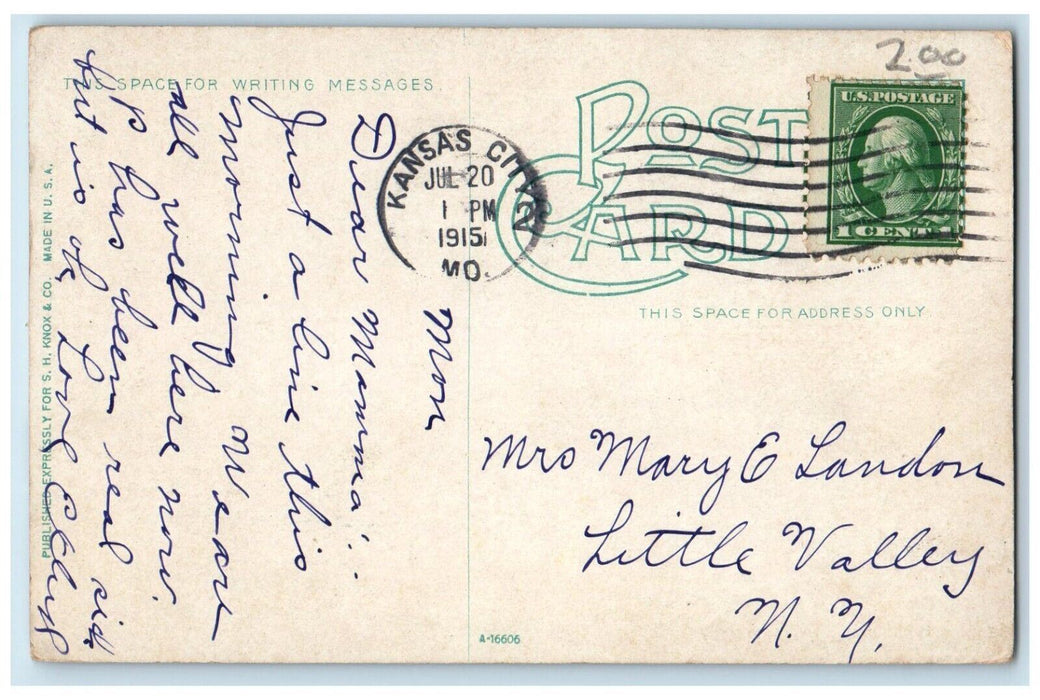 2.00
THIS SPACE FOR WRITING MESSAGES.
POST
CARD
U.S. POSTAGE
1 CENT 1
KANSAS CITY
JUL 20
1 PM
1915
MO.
2
THIS SPACE FOR ADDRESS ONLY.
Mon
Dear Mamma:
Just a line this
morning We are
all well here now.
has been real sick
but is ok Love
Mrs Mary E Landon
Little Valley
N. Y.
PUBLISHED EXPRESSLY FOR S. H. KNOX & CO. MADE IN U. S. A.
A-16606